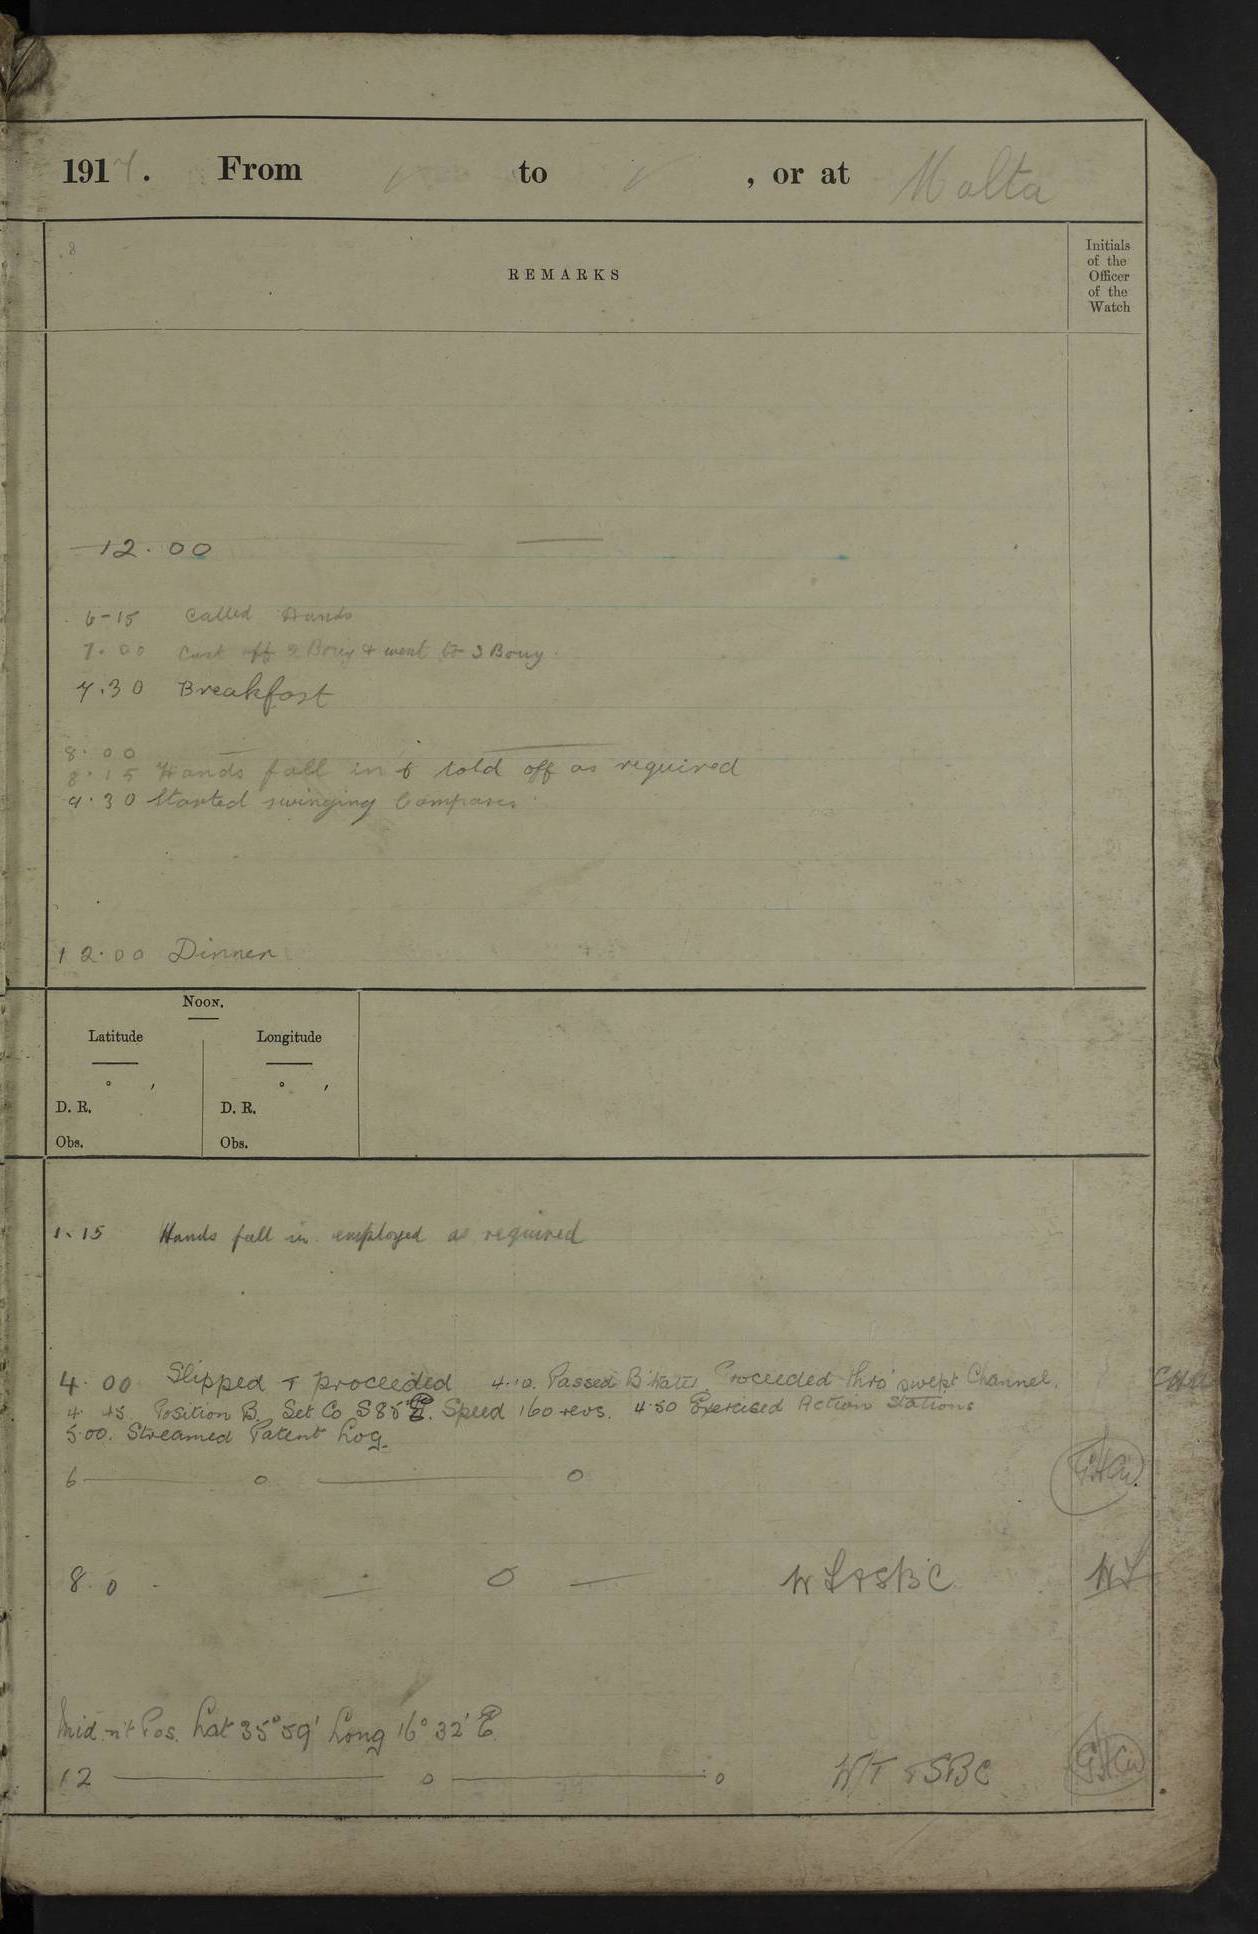 1917. From to , or at Malta
8
REMARKS
Initials
of the
Officer
of the
Watch
12.00
6-15 Called Hands
7.00 Cast off 2 Bouy & went to 3 Bouy
7.30 Breakfast
8.00
8.15 Hands fall in & told off as required
9.30 Started swinging Compasses
12.00 Dinner
NOON.
Latitude Longitude
° ' ° '
D. R. D. R.
Obs. Obs.
1.15 Hands fall in employed as required
4.00 Slipped & proceeded 4.10. Passed B'kater Proceeded thro' swept Channel.
4.45. Position B. Set Co S85°E. Speed 160 revs. 4.50 Exercised Action Stations
5.00. Streamed Patent Log.
6 o o
8.0 O W L & SBC WL
Mid-n't Pos. Lat 35°59' Long 16°32' E.
12 o o W/T & SBC